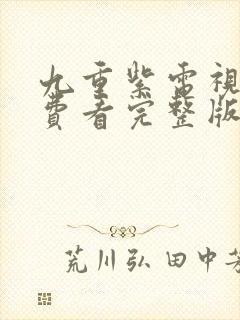 九重紫電視
費看完整版
荒川弘 田中芳